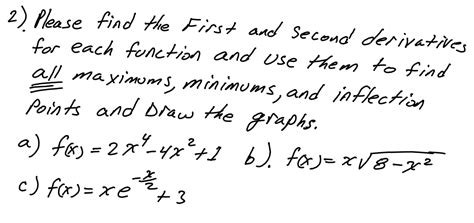 2). Please find the First and Second derivatives
for each function and use them to find
all maximums, minimums, and inflection
Points and Draw the graphs.
a) f(x) = 2x⁴-4x²+1 b). f(x) = x√8-x²
c) f(x) = xe^-x/2 + 3